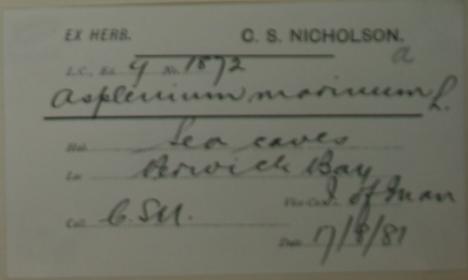 EX HERB. C. S. NICHOLSON.
L.C., Ed. 9 No. 1872 a
Asplenium marinum L.
Hab. Sea caves
Loc. Perwick Bay
Vice-Com. I. of Man
Coll. C.S.N.
Date 7/8/81